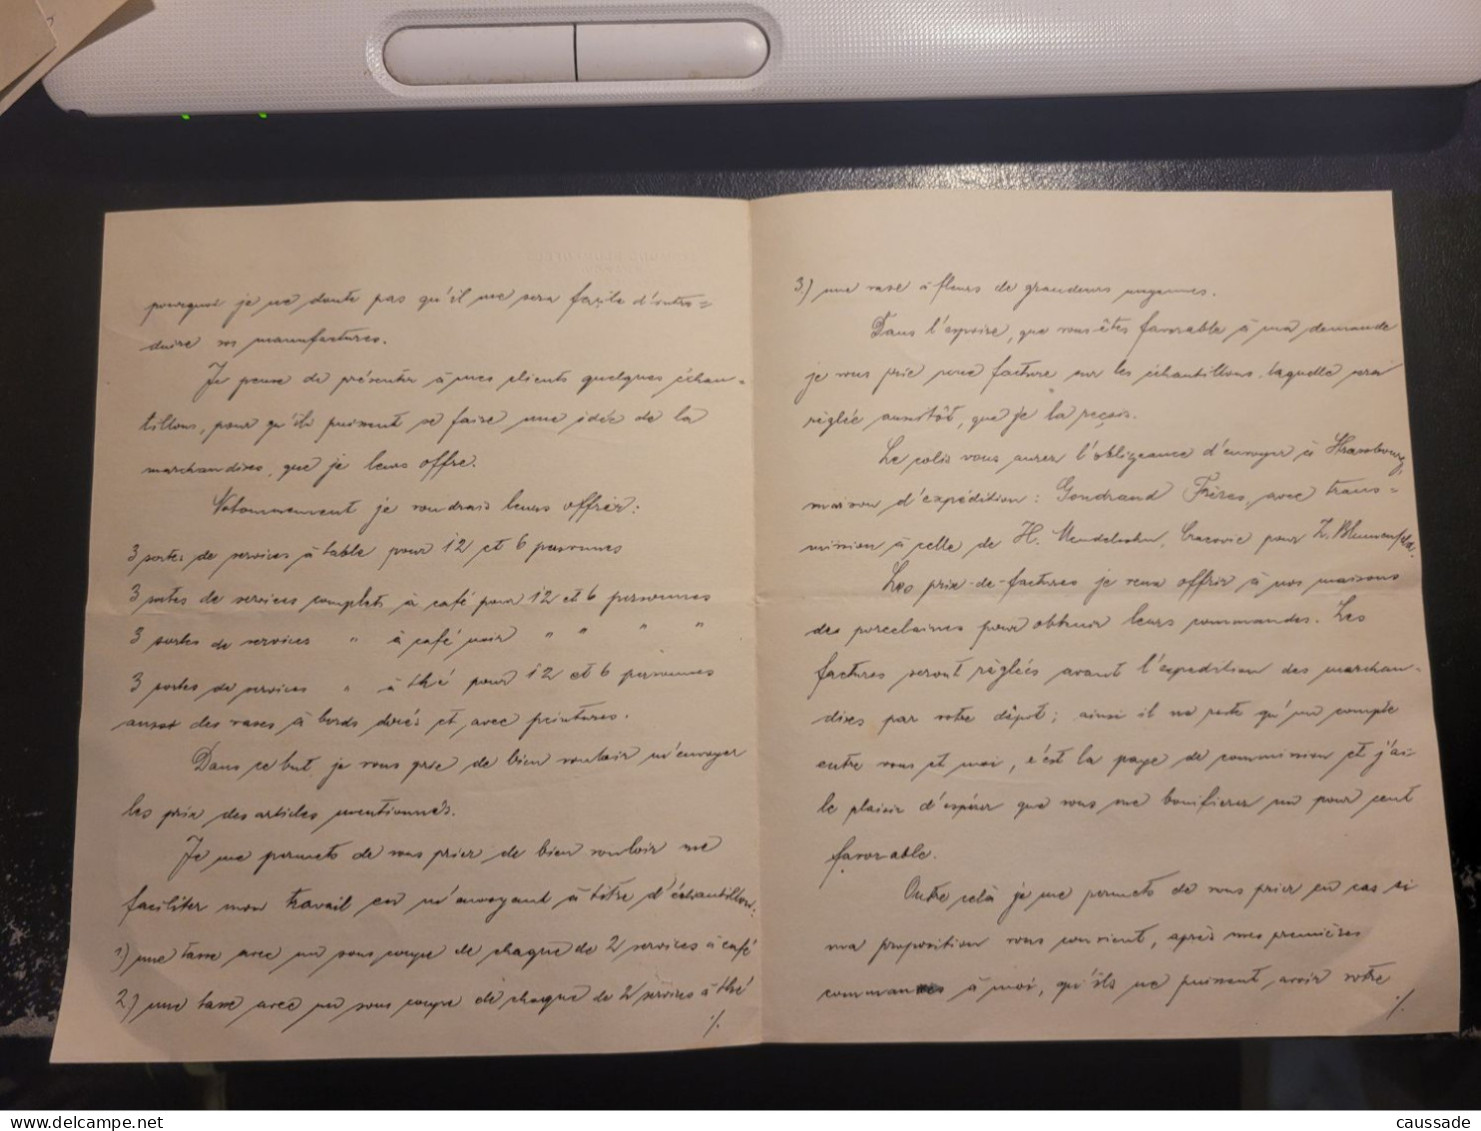 pourquoi je ne doute pas qu'il me sera façile d'intro=
duire vos manufactures.
Je pense de présenter à mes clients quelques échan=
tillons, pour qu'ils puissent se faire une idée de la
marchandises, que je leurs offre.
Notammement je voudrais leurs offrir:
3 sortes de services à table pour 12 et 6 personnes
3 sortes de services complets à café pour 12 et 6 personnes
3 sortes de services " à café noir " " " "
3 sortes de services " à thé pour 12 et 6 personnes
aussi des vases à bords dorés et avec peintures.
Dans ce but je vous prie de bien vouloir m'envoyer
les prix des articles mentionnés.
Je me permets de vous prier de bien vouloir me
faciliter mon travail en m'envoyant à titre d'échantillon:
1) une tasse avec un sous coupe de chaque de 2 services à café
2) une tasse avec un sous coupe de chaque de 2 services à thé
./.
3) une vase à fleurs de grandeurs moyennes.
Dans l'espoire, que vous êtes favorable à ma demande
je vous prie pour facture sur les échantillons, laquelle sera
réglée aussitôt, que je la reçois.
Le colis vous aurez l'obligeance d'envoyer à Strasbourg,
maison d'expédition: Gondrand Frères, avec trans=
mission à celle de H. Mendelsohn, Cracovie pour Z. Blumenfeld.
Les prix-de-factures je veux offrir à nos maisons
des porcelaines pour obtenir leurs commandes. Les
factures seront réglées avant l'expédition des marchan-
dises par votre dépôt; ainsi il ne reste qu'un compte
entre vous et moi, c'est la paye de commission et j'ai
le plaisir d'espérer que vous me bonifierez un pour cent
favorable.
Outre celà je me permets de vous prier en cas si
ma proposition vous convient, après mes premières
commandes à moi, qu'ils ne puissent avoir votre
./.
delcampe.net
caussade